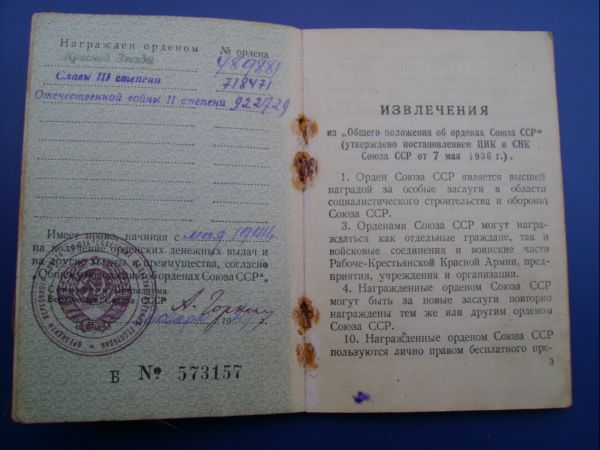 Награжден орденом № ордена
Красной Звезды
Славы III степени 718471
Отечественной войны II степени 922729
Имеет право, начиная с мая 1944г.
на получение орденских денежных выдач и
на другие права и преимущества, согласно
„Общему положению об орденах Союза ССР“.
Верховного Совета СССР
А. Горкин
Б № 573157
ИЗВЛЕЧЕНИЯ
из „Общего положения об орденах Союза ССР“
(утверждено постановлением ЦИК и СНК
Союза ССР от 7 мая 1936 г.).
1. Орден Союза ССР является высшей
наградой за особые заслуги в области
социалистического строительства и обороны
Союза ССР.
3. Орденами Союза ССР могут на-
граждаться как отдельные граждане, так и
войсковые соединения и воинские части
Рабоче-Крестьянской Красной Армии, пред-
приятия, учреждения и организации.
4. Награжденные орденом Союза ССР
могут быть за новые заслуги повторно
награждены тем же или другим орденом
Союза ССР.
10. Награжденные орденом Союза ССР
пользуются лично правом бесплатного про-
3